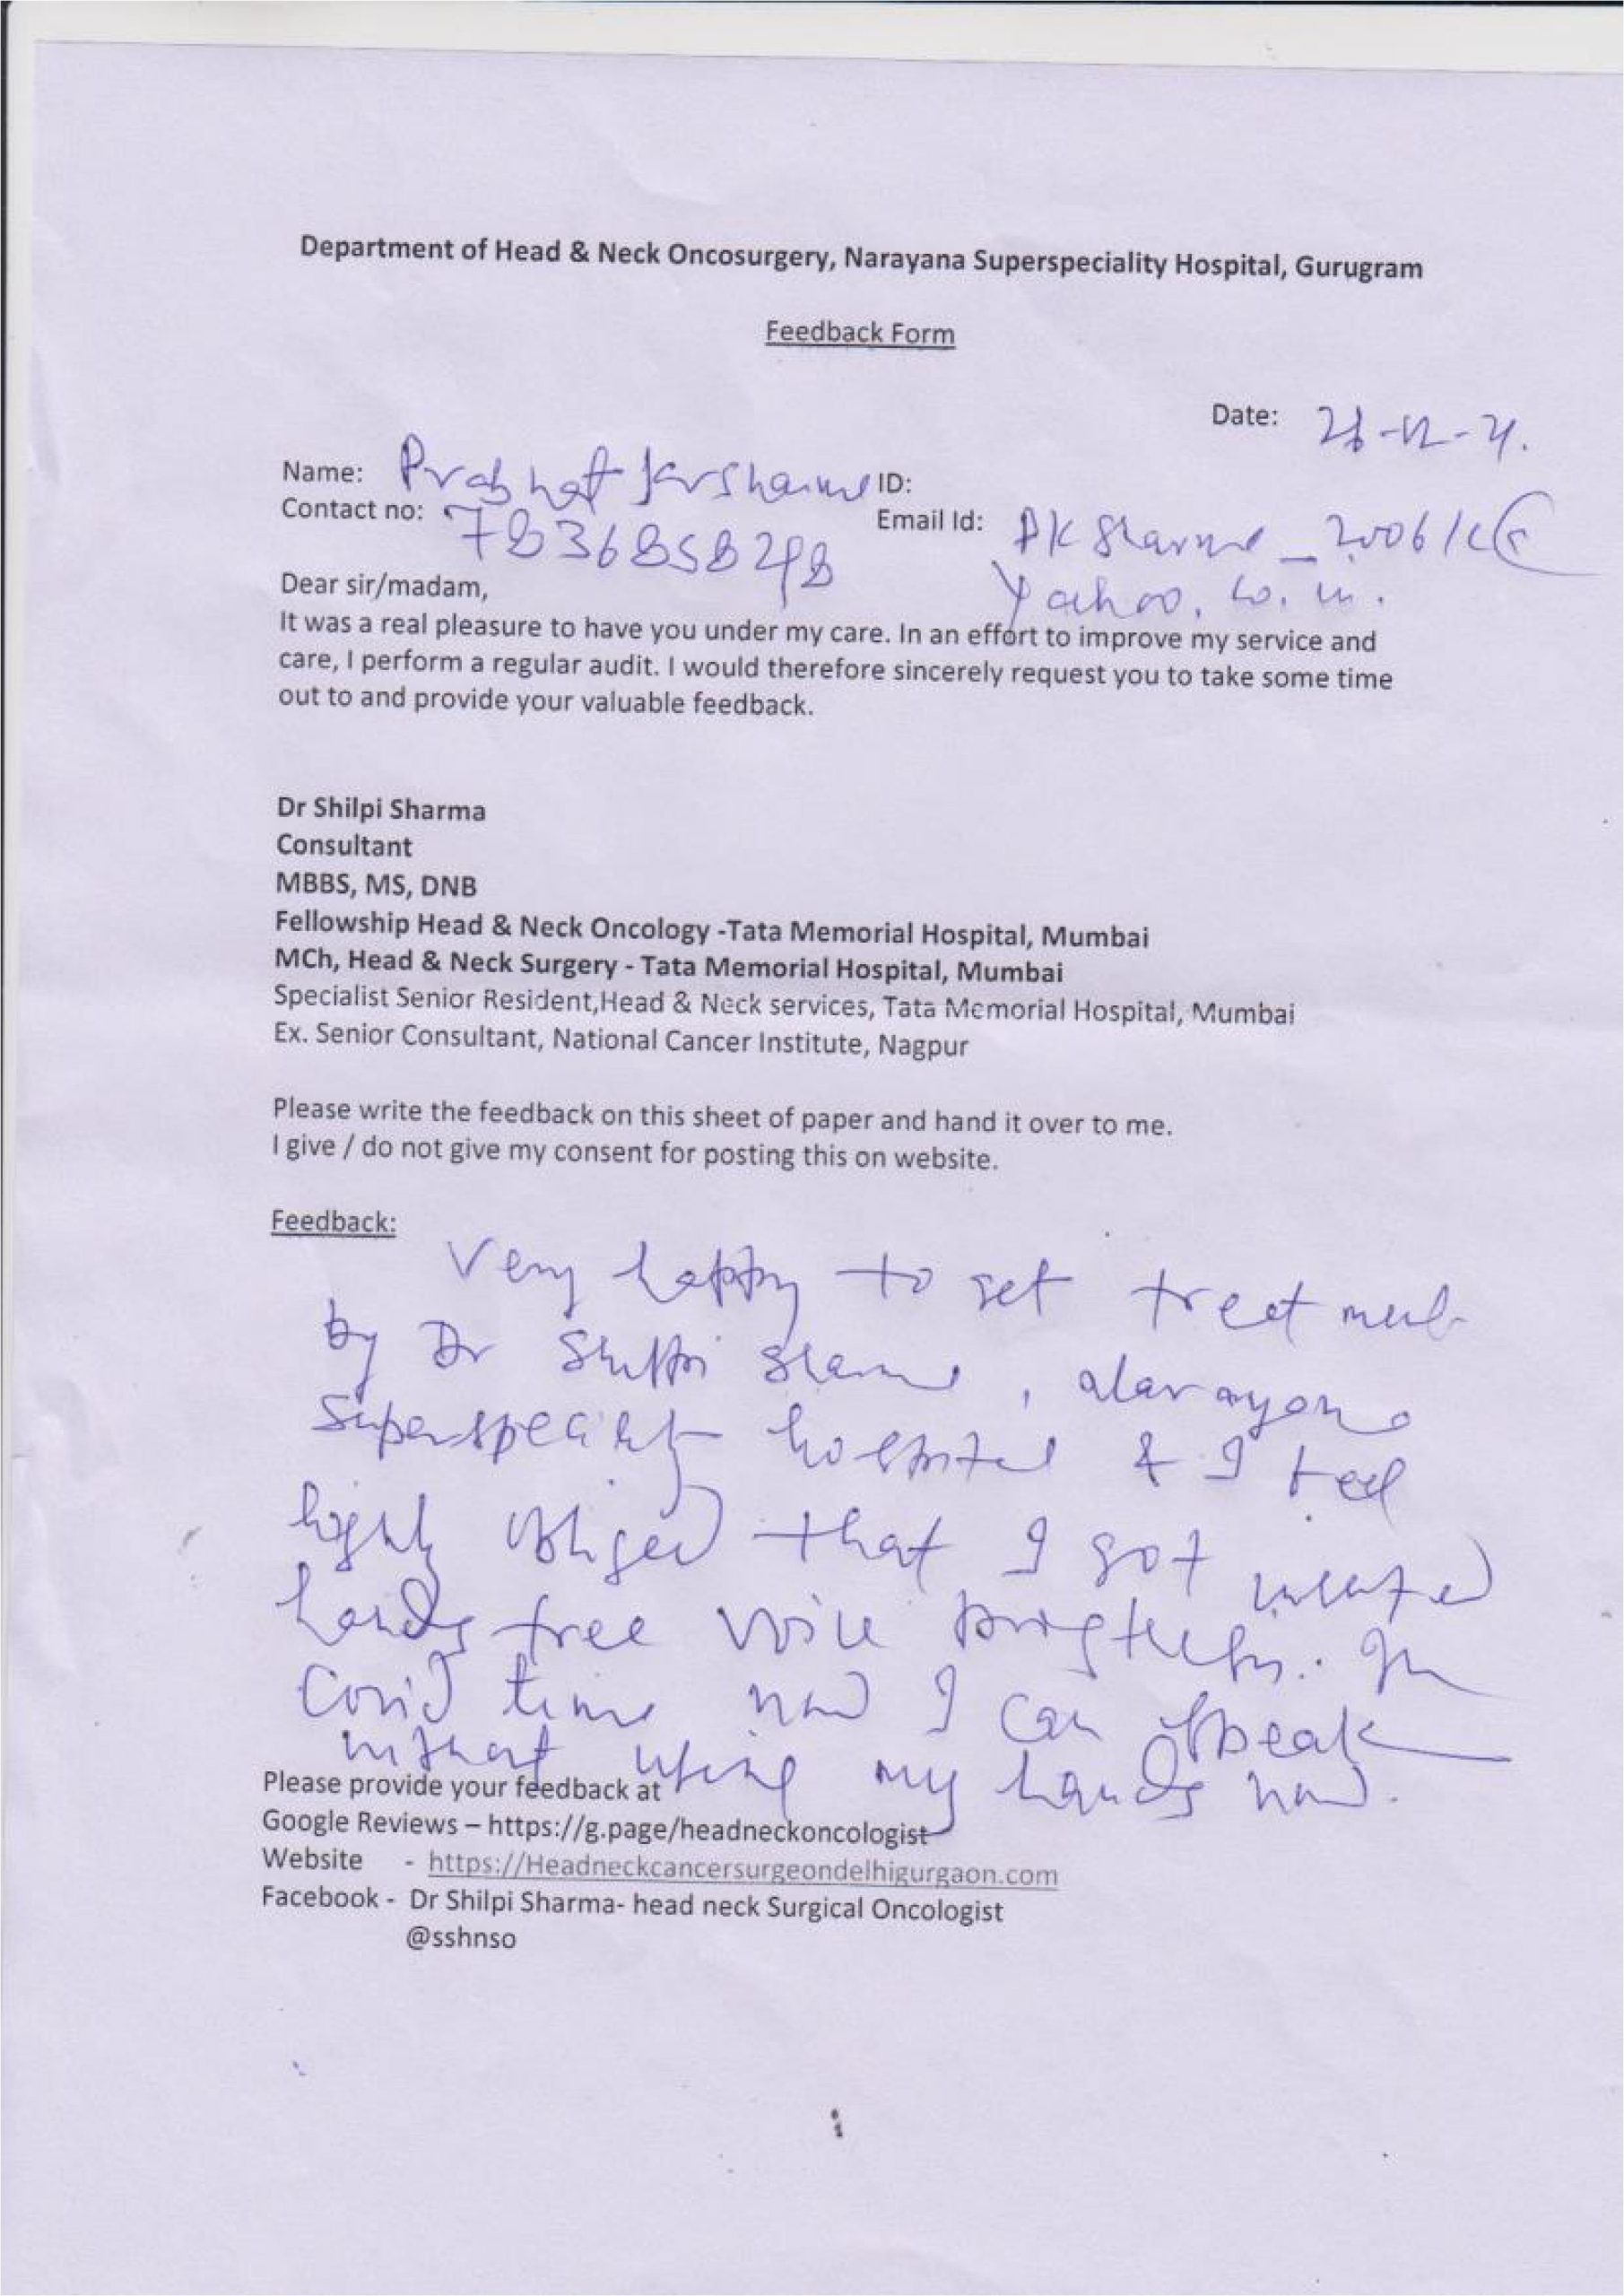 Department of Head & Neck Oncosurgery, Narayana Superspeciality Hospital, Gurugram
Feedback Form
Date:
Name: Prabhat Kr Sharma ID:
Contact no: 7836858298 Email Id: PK Sharma_2006
Yahoo. co. in.
Dear sir/madam,
It was a real pleasure to have you under my care. In an effort to improve my service and
care, I perform a regular audit. I would therefore sincerely request you to take some time
out to and provide your valuable feedback.
Dr Shilpi Sharma
Consultant
MBBS, MS, DNB
Fellowship Head & Neck Oncology -Tata Memorial Hospital, Mumbai
MCh, Head & Neck Surgery - Tata Memorial Hospital, Mumbai
Specialist Senior Resident,Head & Neck services, Tata Memorial Hospital, Mumbai
Ex. Senior Consultant, National Cancer Institute, Nagpur
Please write the feedback on this sheet of paper and hand it over to me.
I give / do not give my consent for posting this on website.
Feedback:
Very happy to get treatment
by Dr Shilpi Sharma, Narayana
Superspeciality hospital & I feel
highly obliged that I got
hands free voice In
Covid time now I can speak
without using my hands now.
Please provide your feedback at
Google Reviews – https://g.page/headneckoncologist
Website - https://Headneckcancersurgeondelhigurgaon.com
Facebook - Dr Shilpi Sharma- head neck Surgical Oncologist
@sshnso